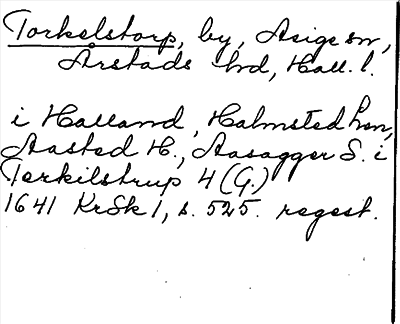 Torkelstorp, by, Asige sn,
Årstads hd, Hall. l.
i Halland, Halmsted Len,
Aasted H., Aasagger S. i
Torkilstrup 4 (G.)
1641 KrSk 1, s. 525. regest.